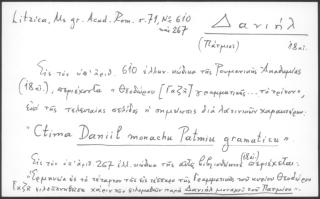 Litzica, Ms gr. Acad. Rom. σ. 71, Nο 610
καὶ 267
Δανιήλ
(Πάτμιος) 18 αἰ.
Εἰς τὸν ὑπ' ἀρ. 610 ἑλλην. κώδικα τῆς Ρουμανικῆς Ἀκαδημίας
(18 αἰ.), περιέχοντα «Θεοδώρου [Γαζῆ] γραμματικῆς... τὸ τρίτον»,
ἐπὶ τῆς τελευταίας σελίδος ἡ σημείωσις διὰ λατινικῶν χαρακτήρων:
"Ctima Daniil monachu Patmiu gramaticu"
Εἰς τὸν ὑπ' ἀρ. 267 ἑλλ. κώδικα τῆς αὐτῆς βιβλιοθήκης (18 αἰ.) περιέχεται:
"Ἑρμηνεία εἰς τὸ τέταρτον τῆς εἰς τέσσαρα τῆς Γραμματικῆς τοῦ κυρίου Θεοδώρου
Γαζῆ παρὰ Δανιὴλ μοναχοῦ τοῦ Πατμίου".